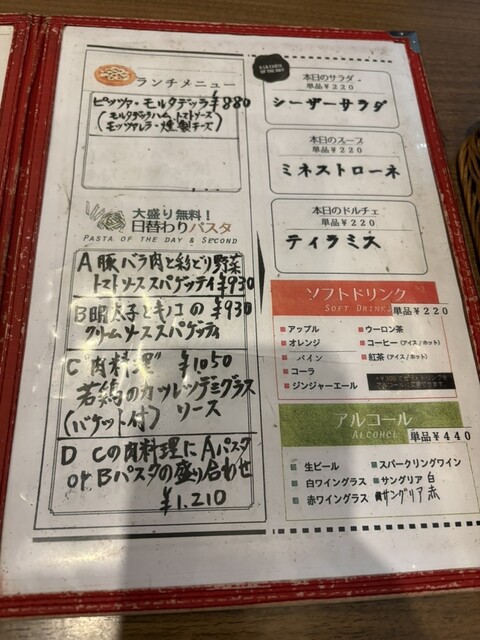 ランチメニュー
ピッツァ・モルタデッラ ¥880
(モルタデッラハム、トマトソース
モッツァレラ・燻製チーズ)
大盛り無料！
日替わりパスタ
PASTA OF THE DAY & SECOND
A 豚バラ肉と彩どり野菜
トマトソーススパゲッティ ¥930
B 明太子とキノコの ¥930
クリームソーススパゲッティ
C "肉料理" ¥1050
若鶏のカツレツデミグラス
(バケット付) ソース
D Cの肉料理にAパスタ
or Bパスタの盛り合わせ
¥1.210
A LA CARTE
OF THE DAY
本日のサラダ
単品¥220
シーザーサラダ
本日のスープ
単品¥220
ミネストローネ
本日のドルチェ
単品¥220
ティラミス
ソフトドリンク
SOFT DRINK 単品¥220
アップル
オレンジ
パイン
コーラ
ジンジャーエール
ウーロン茶
コーヒー(アイス/ホット)
紅茶(アイス/ホット)
アルコール
ALCOHOL 単品¥440
生ビール
白ワイングラス
赤ワイングラス
スパークリングワイン
サングリア 白
サングリア 赤